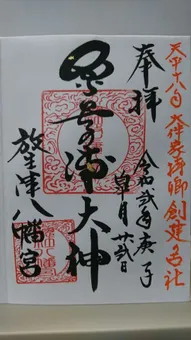 天平十八年 大伴家持卿創建之社
奉拝
令和弐年庚子
皐月廿弐日
奈呉之浦大神
放生津八幡宮